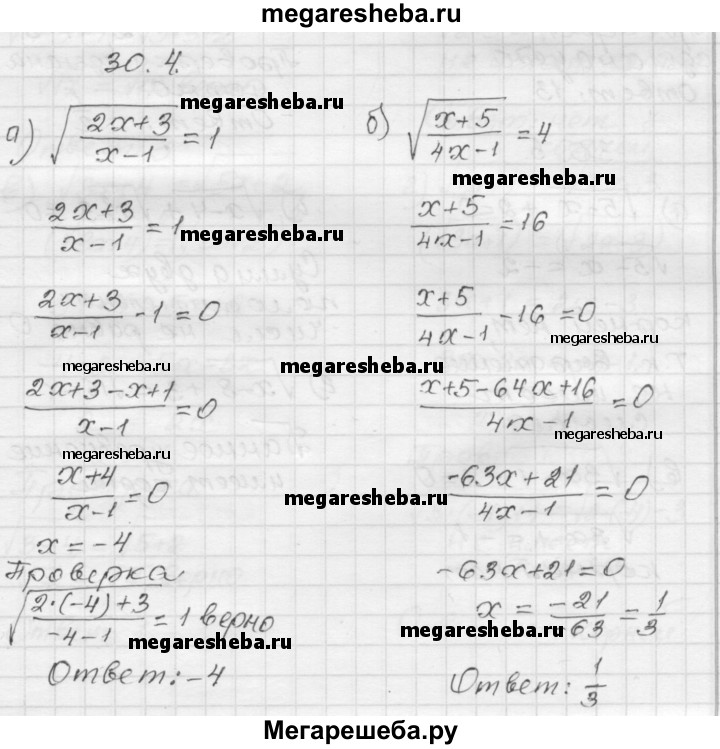 megaresheba.ru
30.4.
а) √((2x+3)/(x-1)) = 1
megaresheba.ru
(2x+3)/(x-1) = 1
megaresheba.ru
(2x+3)/(x-1) - 1 = 0
megaresheba.ru
(2x+3-x+1)/(x-1) = 0
megaresheba.ru
(x+4)/(x-1) = 0
x = -4
Проверка
√((2·(-4)+3)/(-4-1)) = 1 верно
megaresheba.ru
Ответ: -4
б) √((x+5)/(4x-1)) = 4
megaresheba.ru
(x+5)/(4x-1) = 16
(x+5)/(4x-1) - 16 = 0
megaresheba.ru
(x+5-64x+16)/(4x-1) = 0
megaresheba.ru
(-63x+21)/(4x-1) = 0
megaresheba.ru
-63x+21=0
x = -21/63 = 1/3
megaresheba.ru
Ответ: 1/3
Мегарешеба.ру